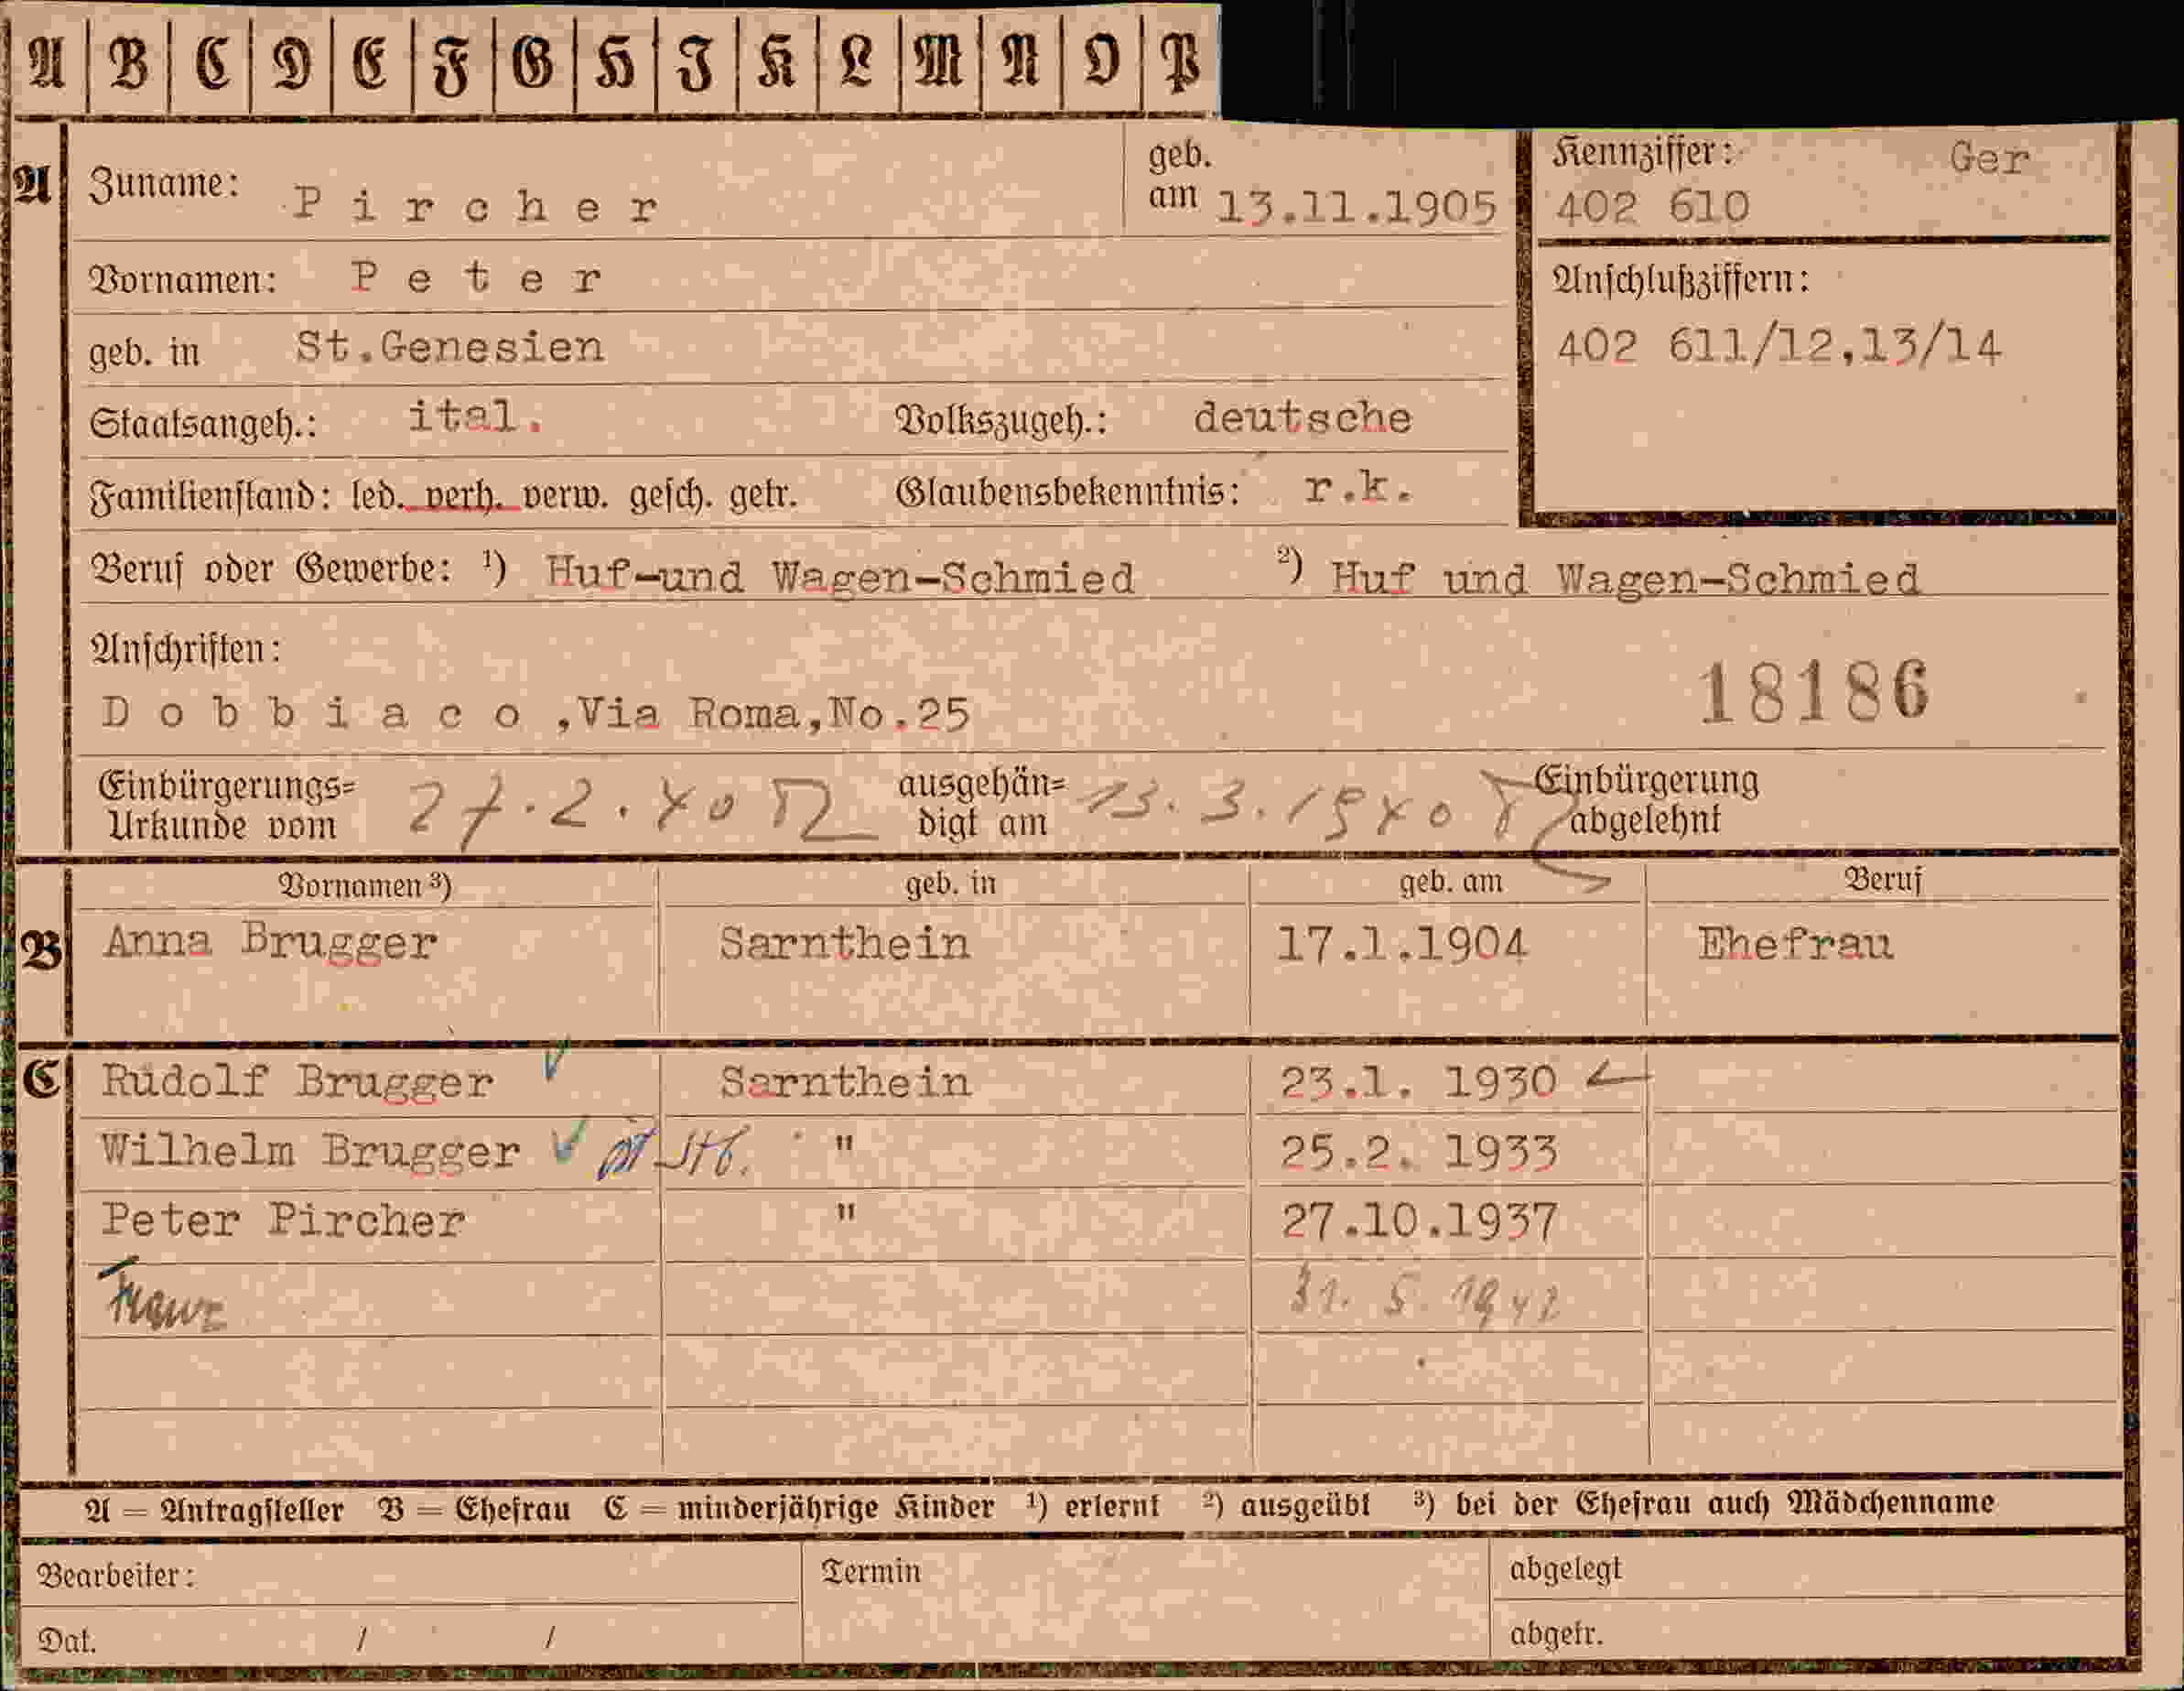 A B C D E F G H I K L M N O P
A Zuname: Pircher geb. am 13.11.1905 Kennziffer: Ger
402 610
Vornamen: Peter
Anschlußziffern:
geb. in St.Genesien 402 611/12,13/14
Staatsangeh.: ital. Volkszugeh.: deutsche
Familienstand: led. verh. verw. gesch. getr. Glaubensbekenntnis: r.k.
Beruf oder Gewerbe: ¹) Huf-und Wagen-Schmied ²) Huf und Wagen-Schmied
Anschriften:
Dobbiaco,Via Roma,No.25 18186
Einbürgerungs= ausgehän= Einbürgerung
Urkunde vom 27.2.40 digt am 13.3.1940 abgelehnt
Vornamen ³) geb. in geb. am Beruf
B Anna Brugger Sarnthein 17.1.1904 Ehefrau
C Rudolf Brugger Sarnthein 23.1. 1930
Wilhelm Brugger " 25.2. 1933
Peter Pircher " 27.10.1937
Franz 31. 5. 1942
A = Antragsteller B = Ehefrau C = minderjährige Kinder ¹) erlernt ²) ausgeübt ³) bei der Ehefrau auch Mädchenname
Bearbeiter: Termin abgelegt
Dat. / / abgetr.